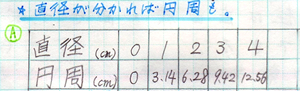 *直径が分かれば円周も。
Ⓐ
直径(cm) 0 1 2 3 4
円周(cm) 0 3.14 6.28 9.42 12.56